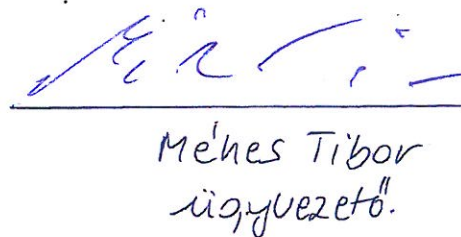 Méhes Tibor
ügyvezető.